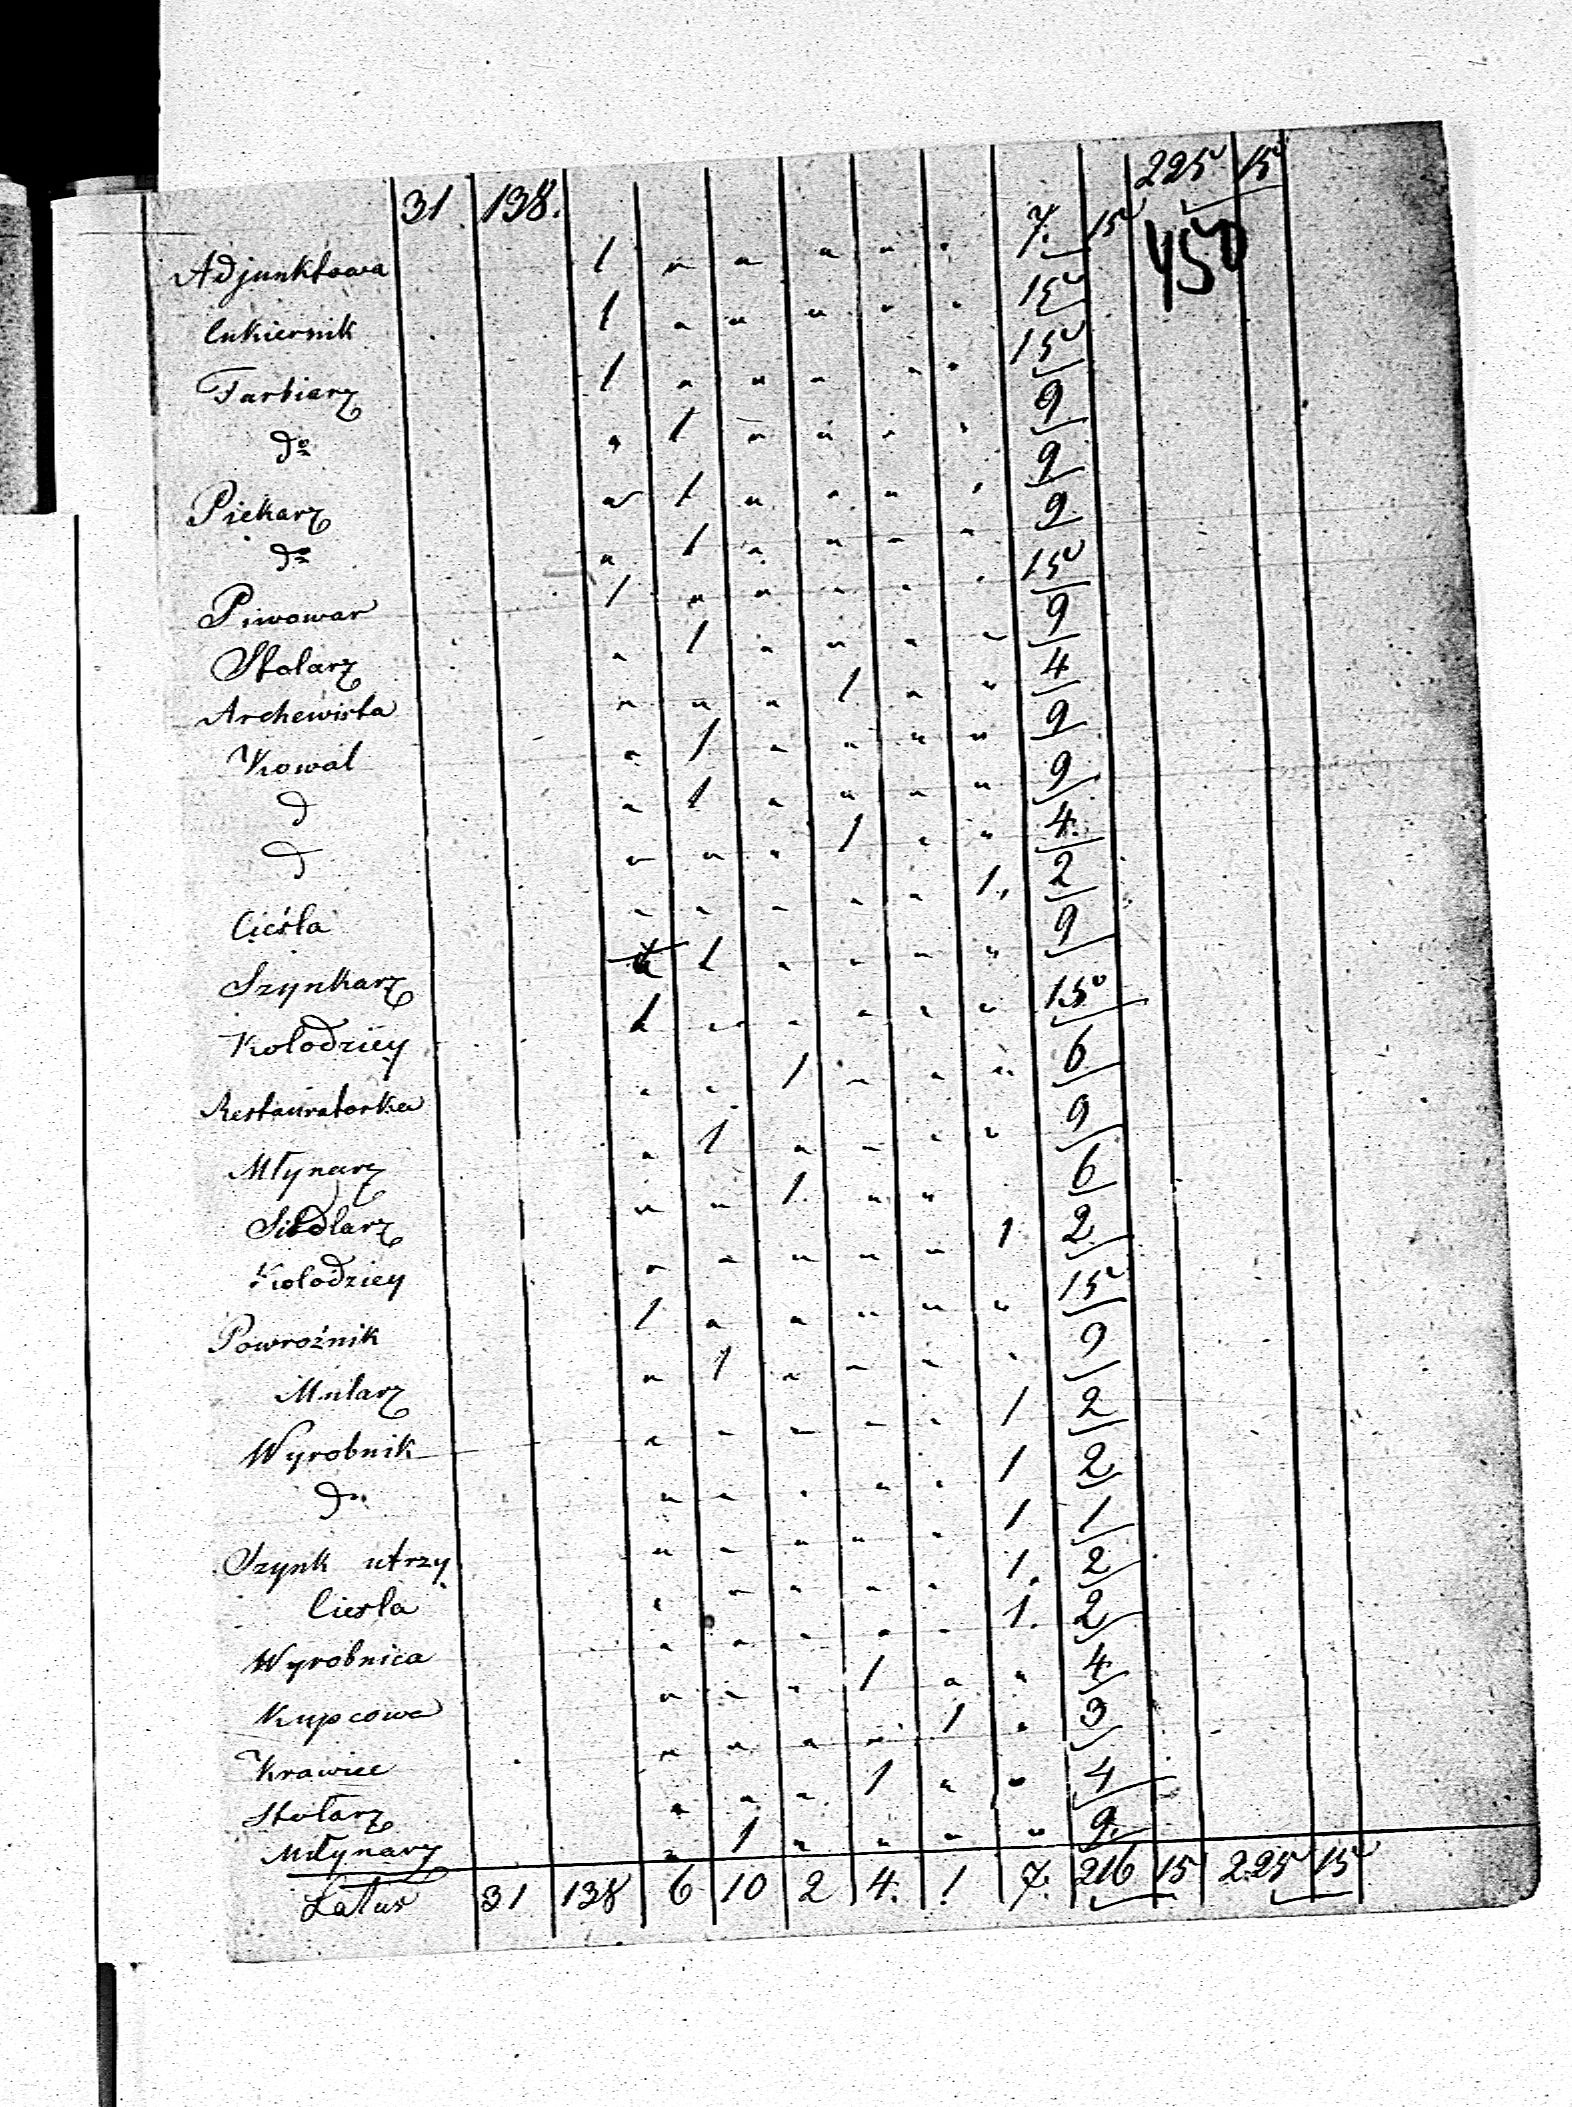 31 138. 225 15
Adjunktowa 1 " " " " " 7. 15 450
Cukiernik 1 " " " " " 15
Farbierz 1 " " " " " 15
do " 1 " " " " 9
Piekarz " 1 " " " " 9
do " 1 " " " " 9
Piwowar 1 " " " " " 15
Stolarz " 1 " " " " 9
Archewista " " " 1 " " 4
Kowal " 1 " " " " 9
d " 1 " " " " 9
d " " " 1 " " 4.
Cieśla " " " " " 1. 2
Szynkarz 1 " " " " 9
Kołodziey 1 " " " " " 15
Restauratorka " " 1 " " " 6
Młynarz " 1 " " " " 9
Siodlarz " " 1 " " " 6
Kołodziey " " " " " 1 2
Powroźnik 1 " " " " " 15
Mularz " 1 " " " " 9
Wyrobnik " " " " " 1 2
do " " " " " 1 2
Szynk utrzy. " " " " " 1 1
Ciesla " " " " " 1. 2
Wyrobnica " " " " " 1. 2
Kupcowa " " " 1 " " 4
Krawiec " " " " 1 " 3
Stolarz " " " 1 " " 4
Młynarz " 1 " " " " 9.
Latus 31 138 6 10 2 4. 1 7. 216 15 225 15